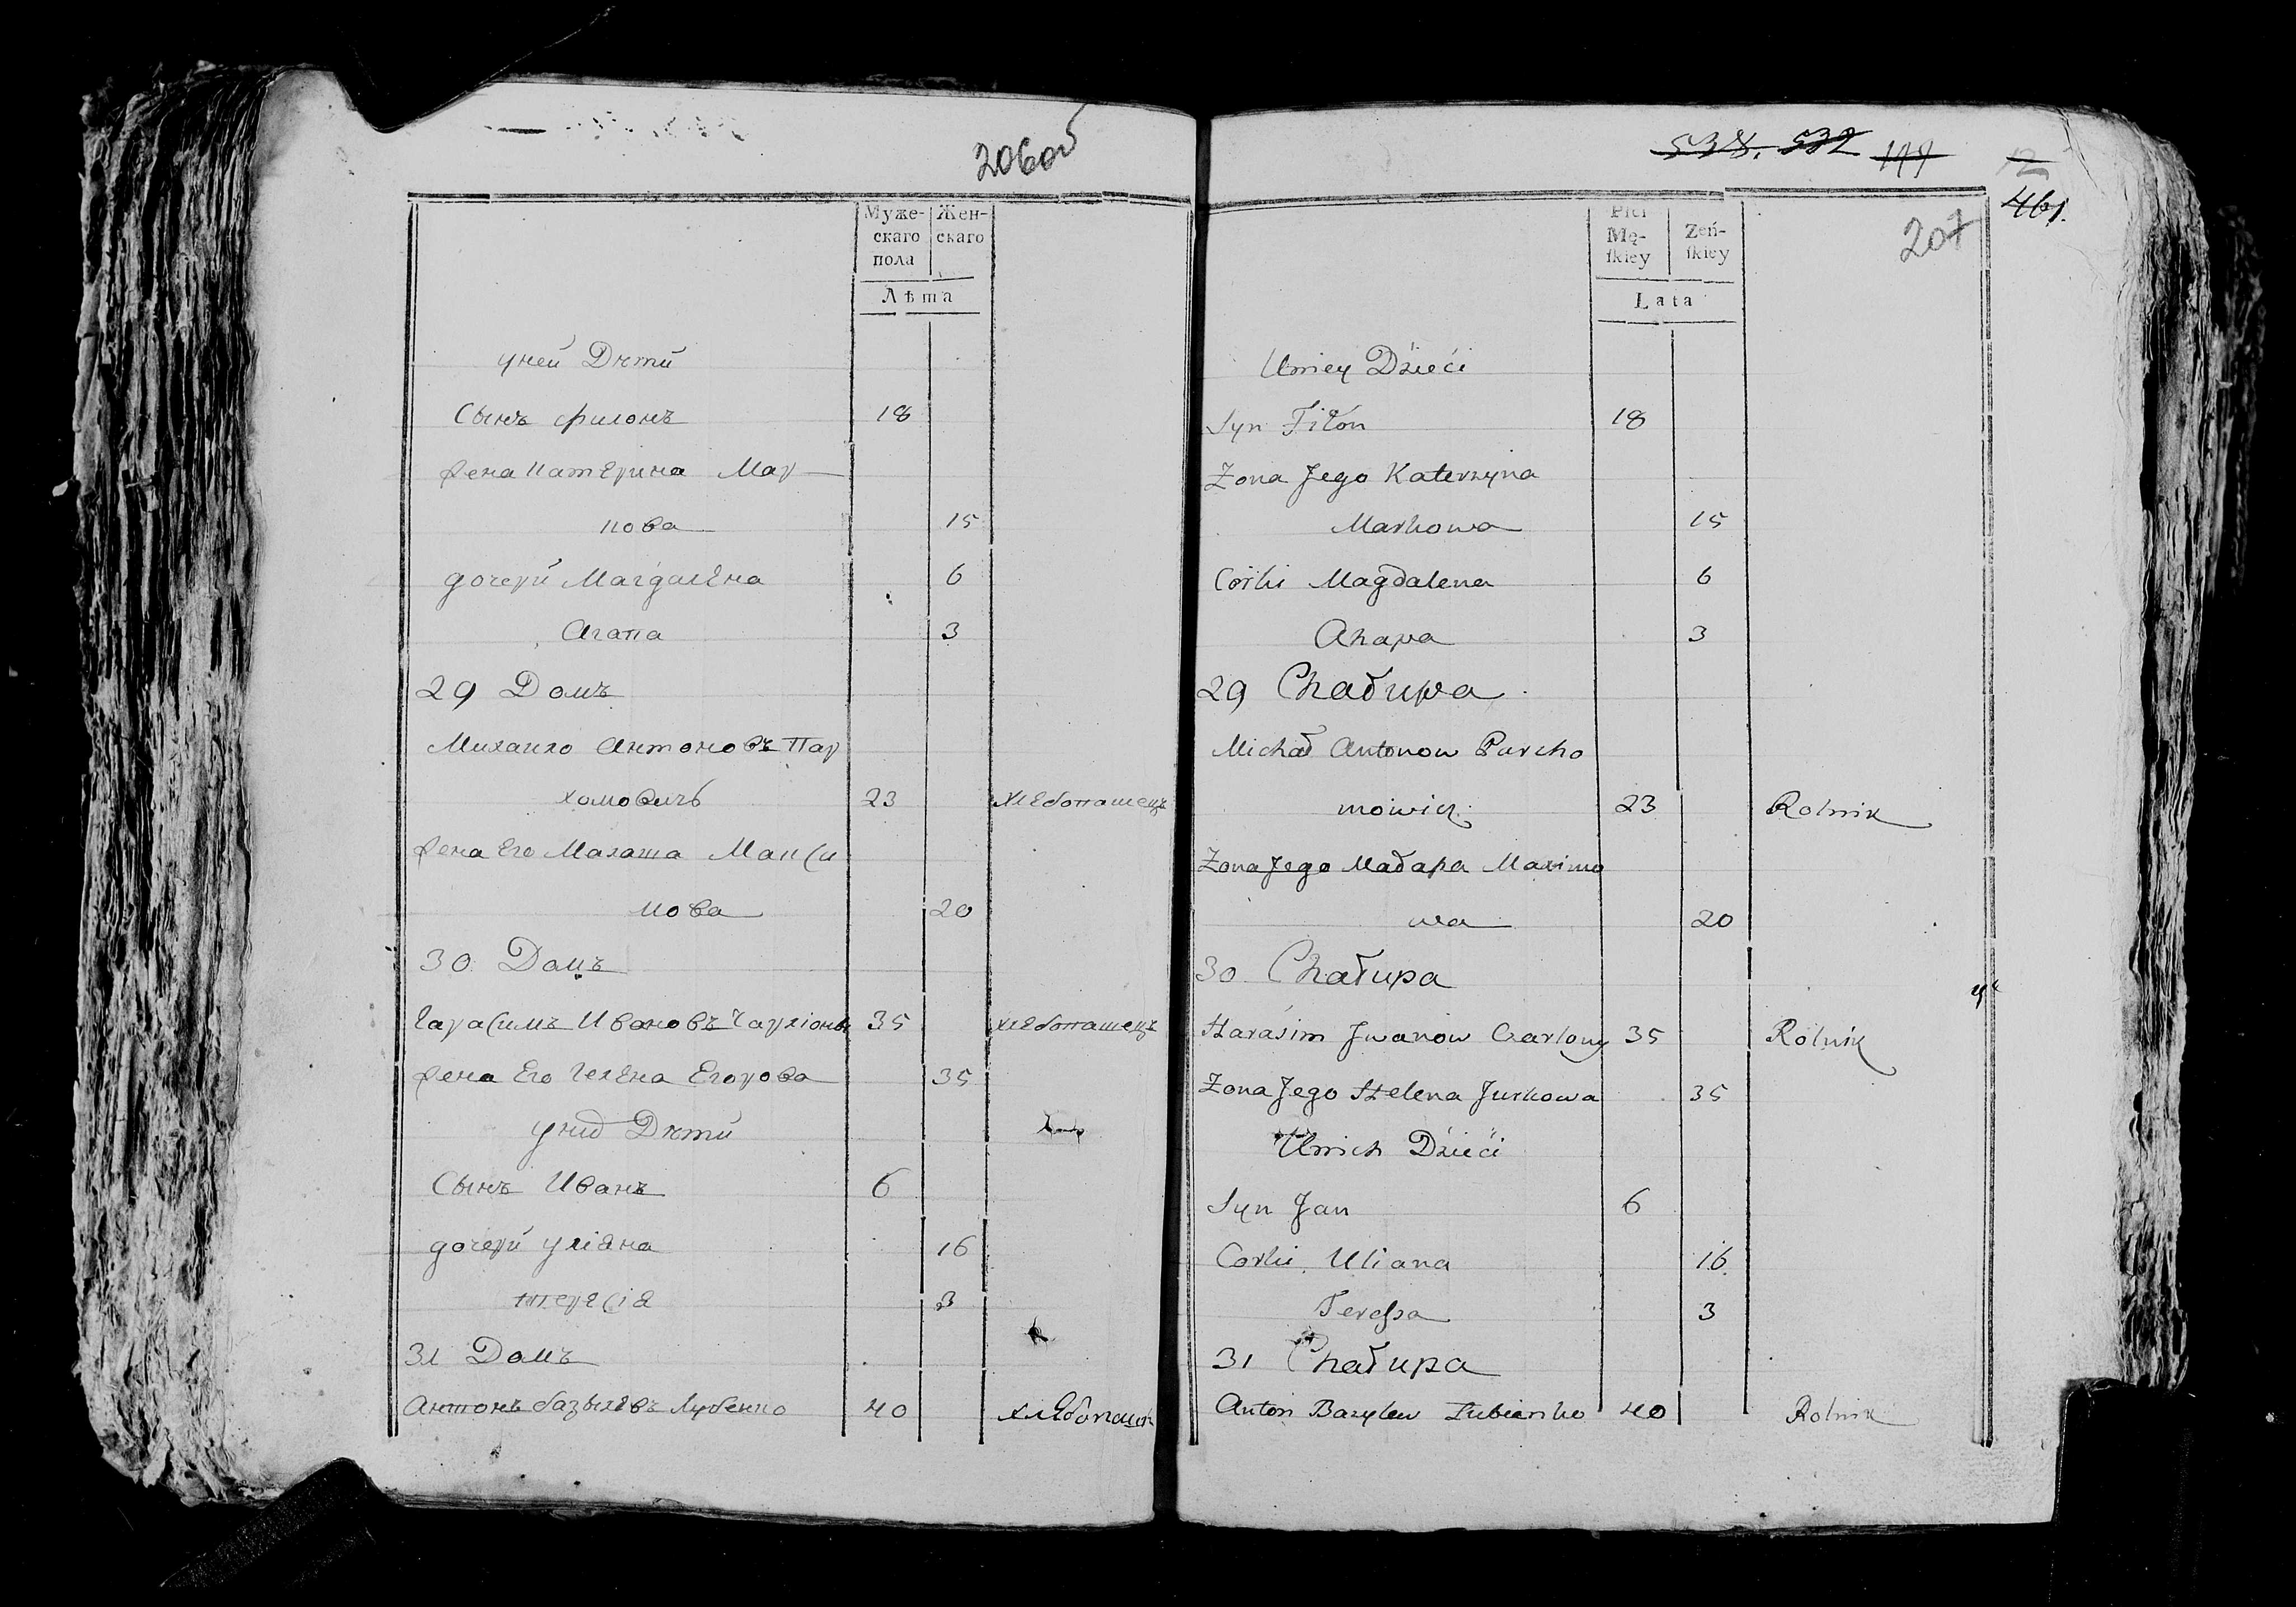 206об
Муже-
скаго
пола
Жен-
скаго
Лѣта
уней Дѣти
Сынъ Филонъ 18
Жена Катерина Мар
кова 15
дочери Магдалена 6
Агапа 3
29 Домъ
Михаило Антоновъ Пар
хомовичъ 23 хлебопашецъ
Жена Его Малаша Макси
мова 20
30 Домъ
Гарасимъ Ивановъ 35 хлебопашецъ
Жена Его Гелена Егорова 35
уних Дѣти
Сынъ Иванъ 6
дочери Улiана 16
Тересiа 3
31 Домъ
Антонъ Базылевъ Лубенко 40 хлебопашец
538. 532 194 12
461.
207
Płci
Mę-
ſkiey
Zeń-
ſkiey
Lata
Uniey Dzieći
Syn Fiłon 18
Zona Jego Katerzyna
Markowa 15
Corki Magdalena 6
Ahapa 3
29 Chałupa
Michał Antonow Parcho
mowicz 23 Rolnik
Zona Jego Małaſza Maximo
wa 20
30 Chałupa
Harasim Jwanow 35 Rolnik
Zona Jego Helena Jurkowa 35
Unich Dzieći
Syn Jan 6
Corki Uliana 16
Tereſsa 3
31 Chałupa
Anton Bazylew Łubienko 40 Rolnik